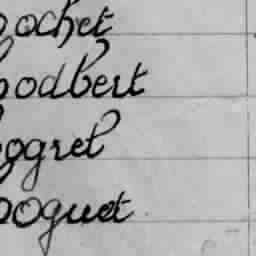 ochet
odbert
ogret
oguet